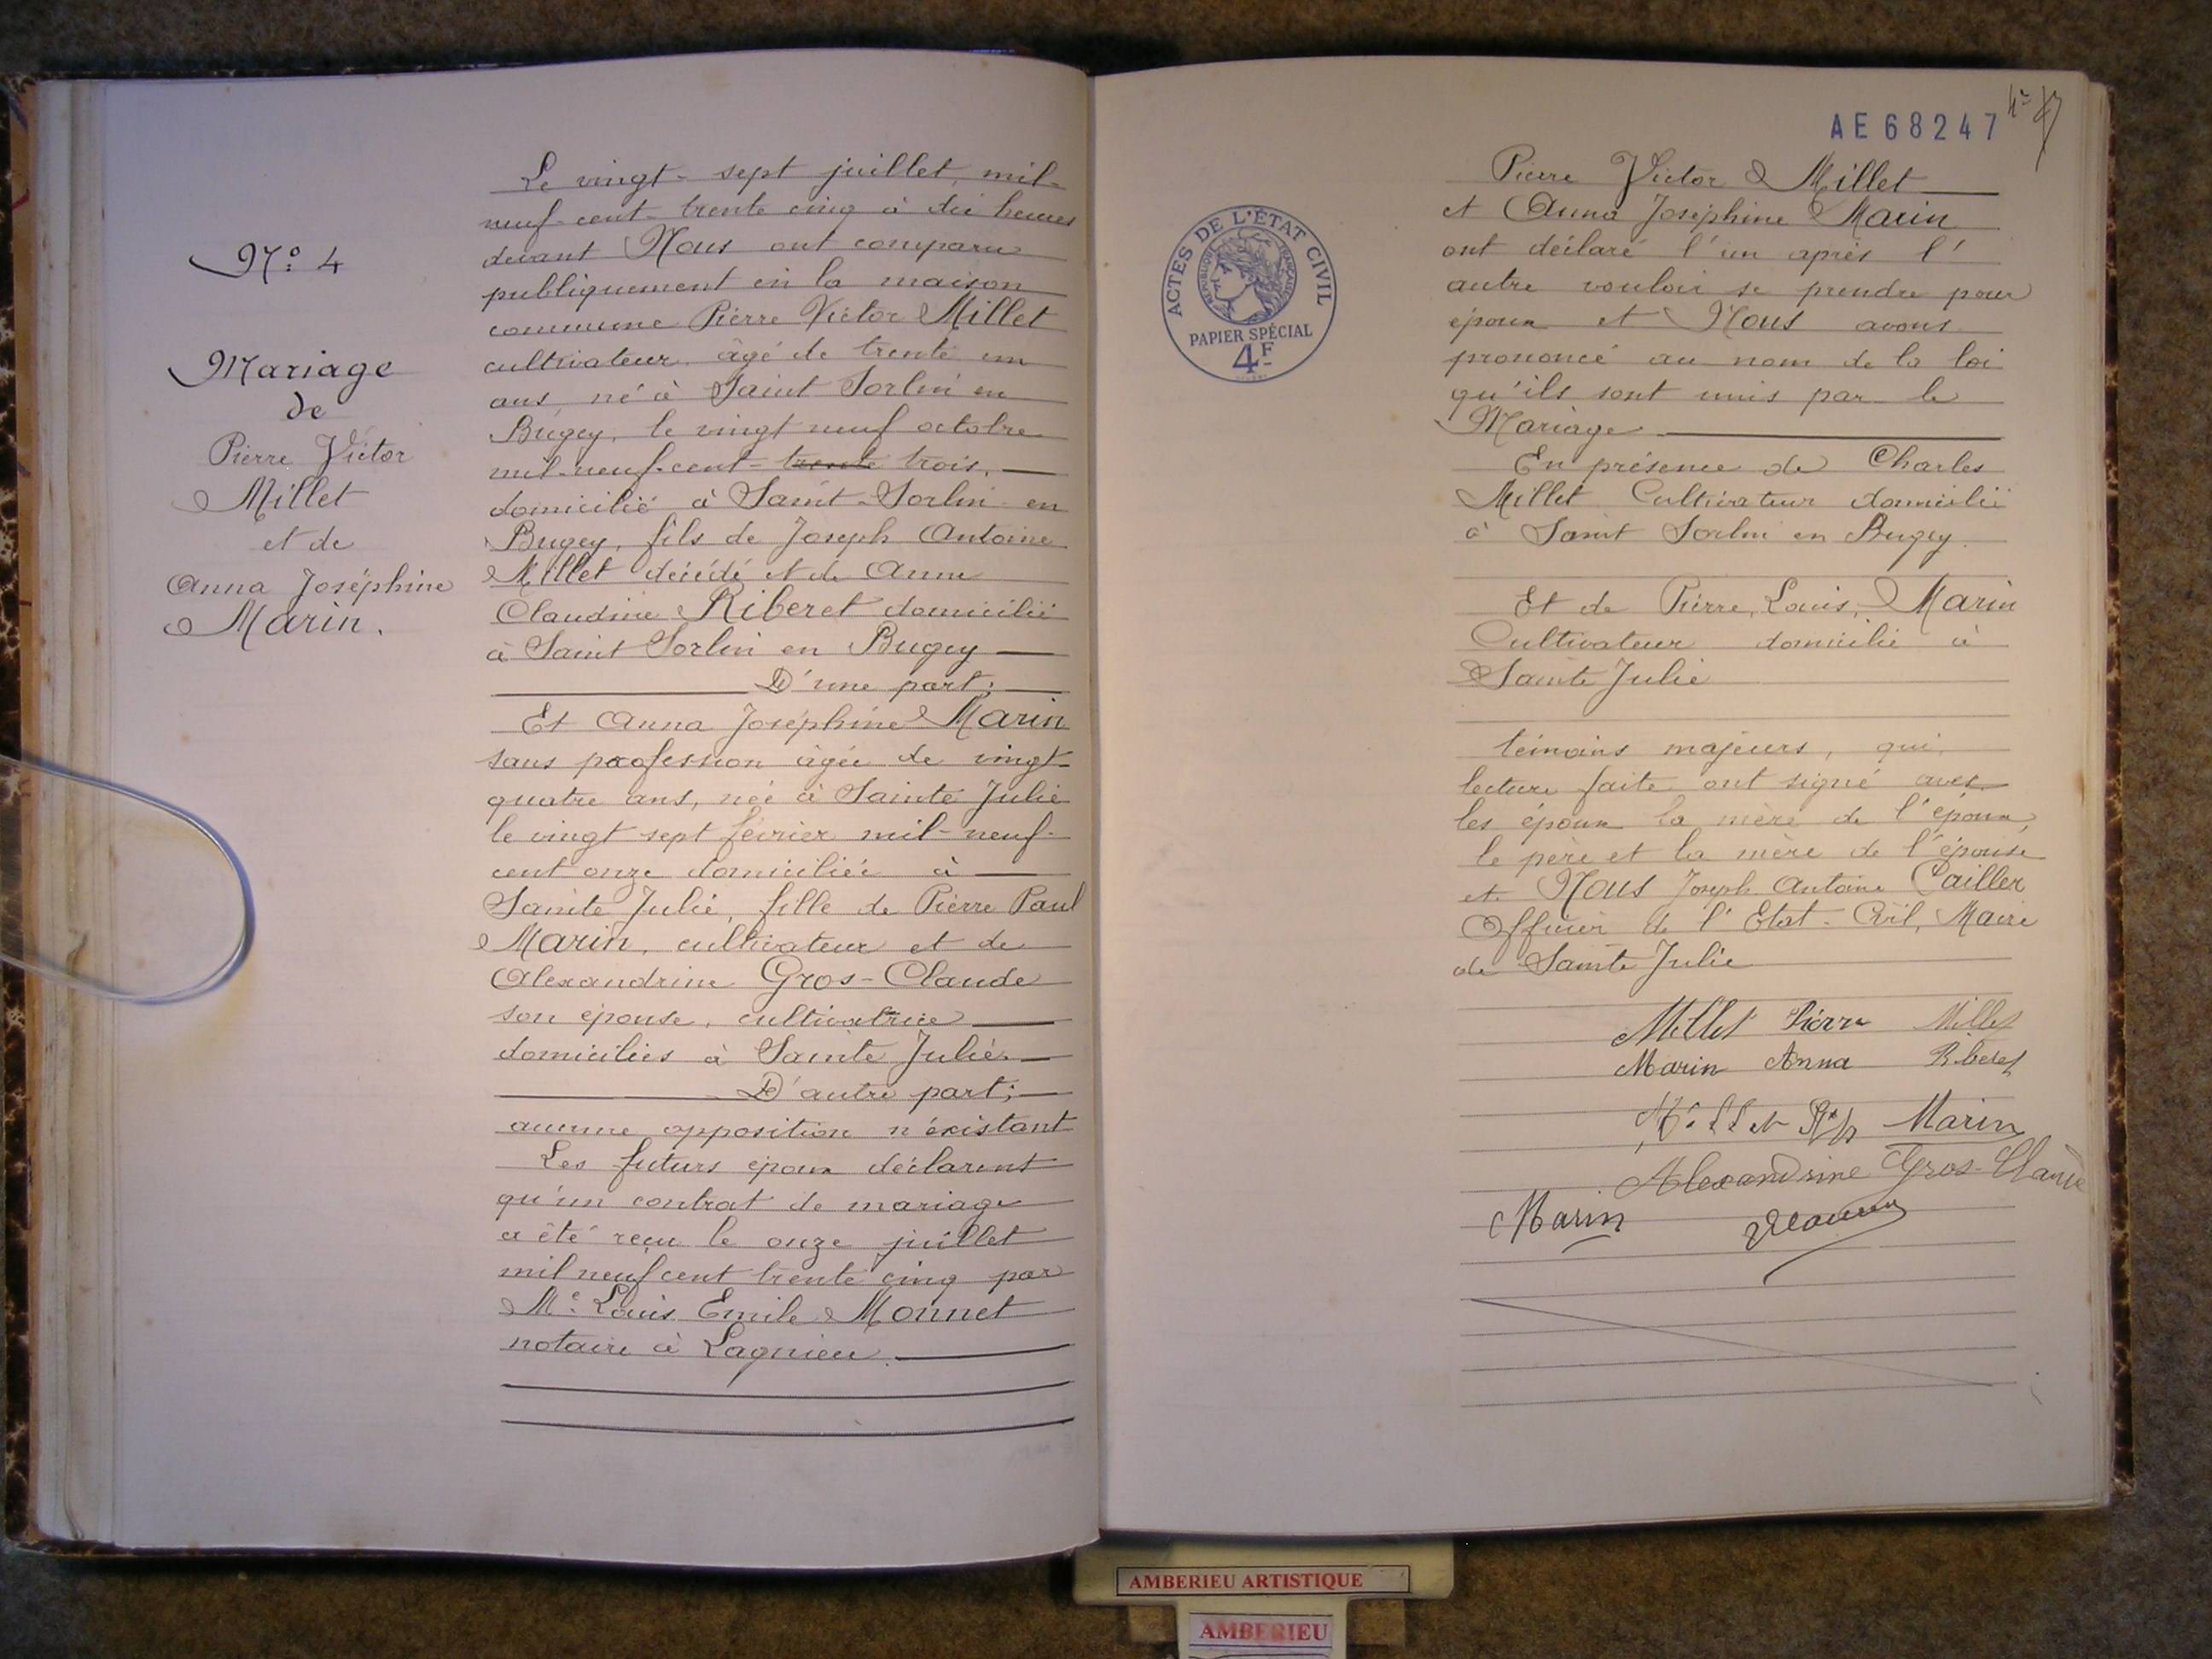 N° 4
Mariage
de
Pierre Victor
Millet
et de
Anna Joséphine
Marin.
Le vingt-sept juillet mil-
neuf-cent-trente cinq à dix heures
devant Nous ont comparu
publiquement en la maison
commune Pierre Victor Millet
cultivateur âgé de trente un
ans, né à Saint Sorlin en
Bugey, le vingt neuf octobre
mil-neuf-cent-trente trois,
domicilié à Saint-Sorlin en
Bugey, fils de Joseph Antoine
Millet décédé et de Anne
Claudine Riberet domicilié
à Saint Sorlin en Bugey
D'une part;
Et Anna Joséphine Marin
sans profession âgée de vingt-
quatre ans, née à Sainte Julie
le vingt sept février mil-neuf-
cent onze domiciliée à
Sainte Julie, fille de Pierre Paul
Marin, cultivateur et de
Alexandrine Gros-Claude
son épouse, cultivatrice
domiciliés à Sainte Julie.
D'autre part;
aucune opposition n'éxistant
Les futurs époux déclarent
qu'un contrat de mariage
a été reçu le onze juillet
mil neuf cent trente cinq par
Me. Louis Emile Monnet
notaire à Lagnieu.
AE68247
Pierre Victor Millet
et Anna Joséphine Marin
ont déclaré l'un après l'
autre vouloir se prendre pour
époux et Nous avons
prononcé au nom de la loi
qu'ils sont unis par le
Mariage
En présence de Charles
Millet Cultivateur domicilié
à Saint Sorlin en Bugey.
Et de Pierre, Louis, Marin
Cultivateur domicilié à
Sainte Julie
témoins majeurs, qui,
lecture faite ont signé avec
les époux la mère de l'époux,
le père et la mère de l'épouse
et Nous Joseph Antoine Cailler
Officier de l'Etat-Civil, Maire
de Sainte Julie
Millet Pierre Millet
Marin Anna Riberet
Millet Marin
Alexandrine Gros-Claude
Marin
ACTES DE L'ÉTAT CIVIL
RÉPUBLIQUE FRANÇAISE
PAPIER SPÉCIAL
4F
AMBERIEU ARTISTIQUE
AMBERIEU